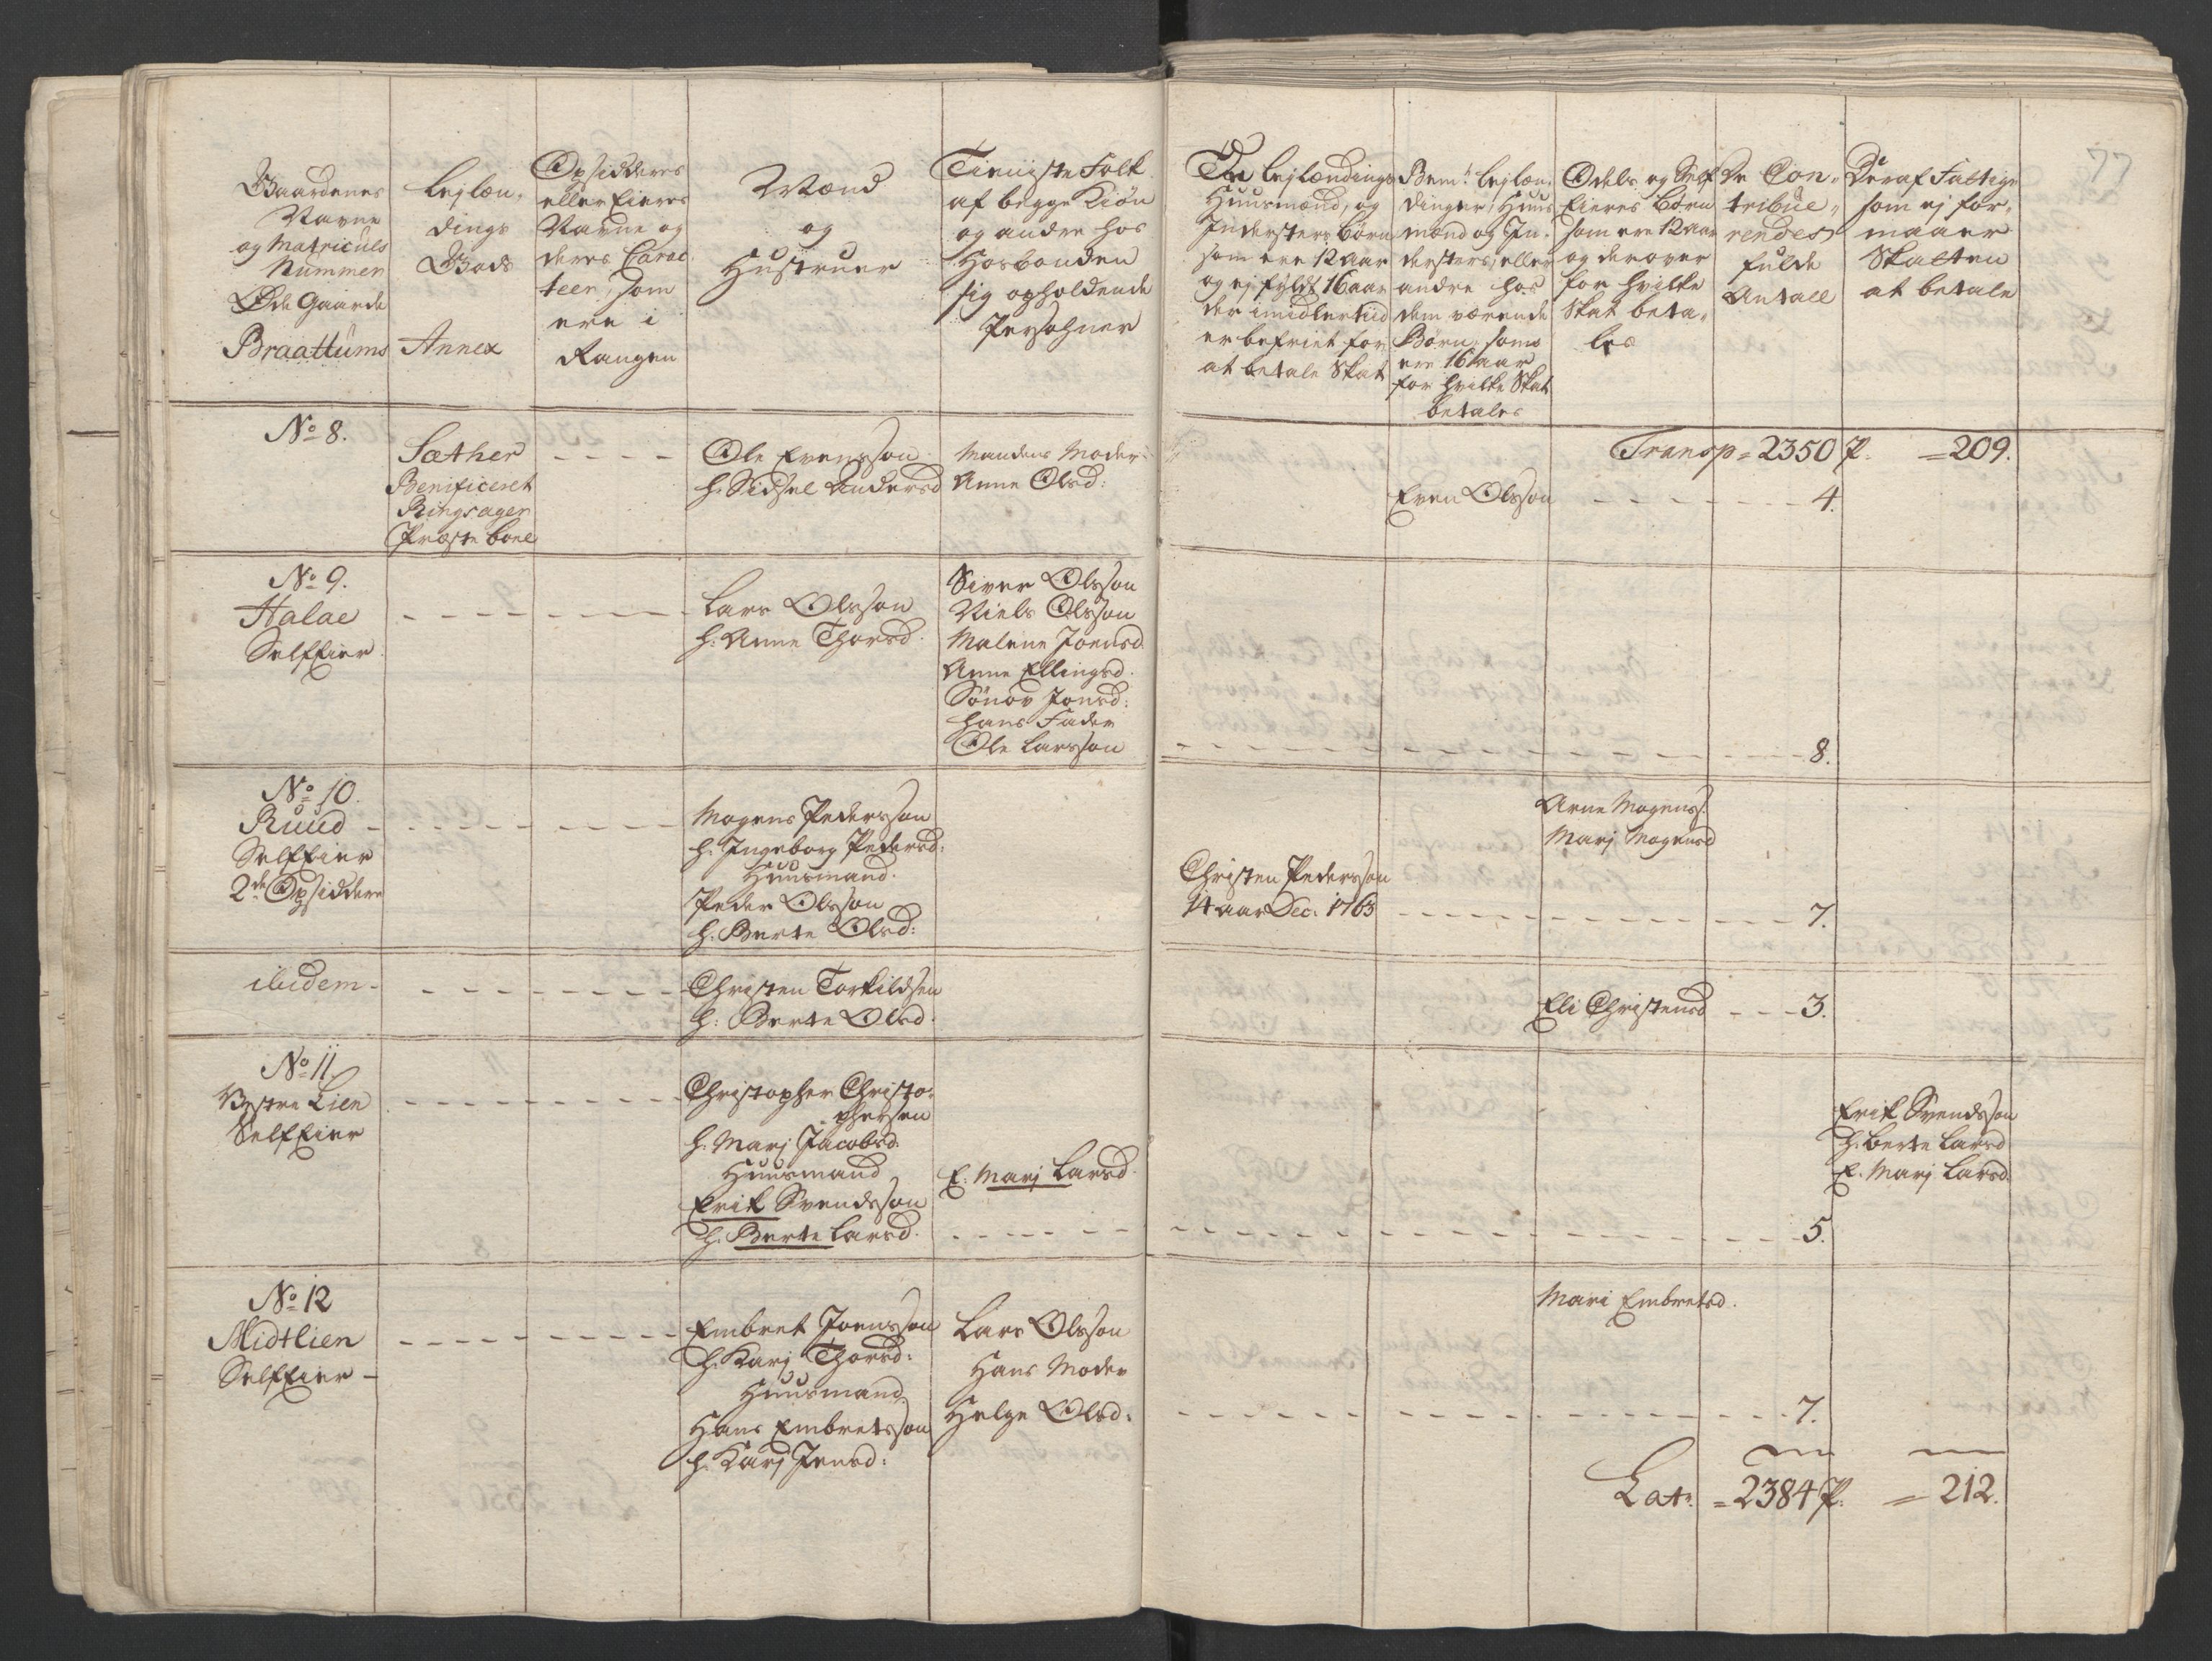 77
Gaardenes
Navne
og Matriculs
Nummer
Øde Gaarde
Braattums
Lejlæn,
dings
Gods
Annex
Opsidderes
eller Eieres
Navne og
deres Carac
teer, som
ere i
Rangen
Mænd
og
Hustruer
Tieniste Folk
af begge Kiøn
og andre hos
Hosbonden
sig opholdende
Persohner
De Lejlændings
Huusmænd, og
Indersters Børn
som ere 12 aar
og ej fyldt 16 aar
der imidlertiid
er befriet for
at betale Skat
Bem.t Lejlæn,
dinger, Huus
mænd og In,
dersters, eller
andre hos
dem værende
Børn, som
ere 16 aar
for hvilke Skat
betales
Odels og Self
Eieres Børn
som ere 12 aar
og derover
for hvilke
Skat beta,
les
De Con,,
tribue,,
rendes
fulde
Antall
Deraf Fattige
som ej for,
maaer
Skatten
at betale
Transp = 2350 P. = 209.
No 8.
Sæther
Benificeret
Ringsager
Præste boel
Ole Evensson
h. Sidsel Andersd
Mandens Moder
Anne Olsd:
Even Olsson - - - - 4.
No 9.
Halae
Selfeier.
Lars Olsson
h. Anne Thorsd.
Siver Olsson
Niels Olsson
Malene Joensd.
Anne Ellingsd.
Sønov Jonsd:
hans Fader
Ole Larsson
- - - - 8.
No 10.
Ruud
Selfeier
2de Opsiddere
Mogens Pedersson
h. Ingeborg Pedersd:
Huusmand.
Peder Olsson
h. Berte Olsd:
Christen Pedersson
14 aar Dec. 1763
Arne Mogenss.
Marj Mogensd
- - - - 7.
ibidem -
Christen Torkildsen
h: Berte Olsd.
Eli Christensd - - - 3.
No 11.
Vestre Lien
Selfeier
Christopher Christo,
phersen
h. Marj Jacobsd.
Huusmand
Erik Svendsson
h. Berte Larsd.
E. Marj Larsd.
- - - - 5.
Erik Svendsson
h. Berte Larsd
E. Marj Larsd.
No 12
Midtlien
Selfeier -
Embret Joensson
h. Karj Thorsd:
Huusmand
Hans Embretsson
h. Karj Jensd:
Lars Olsson
Hans Moder
Helge Olsd:
Mari Embretsd.
- - - - 7.
Lat. = 2384 P. = 212.